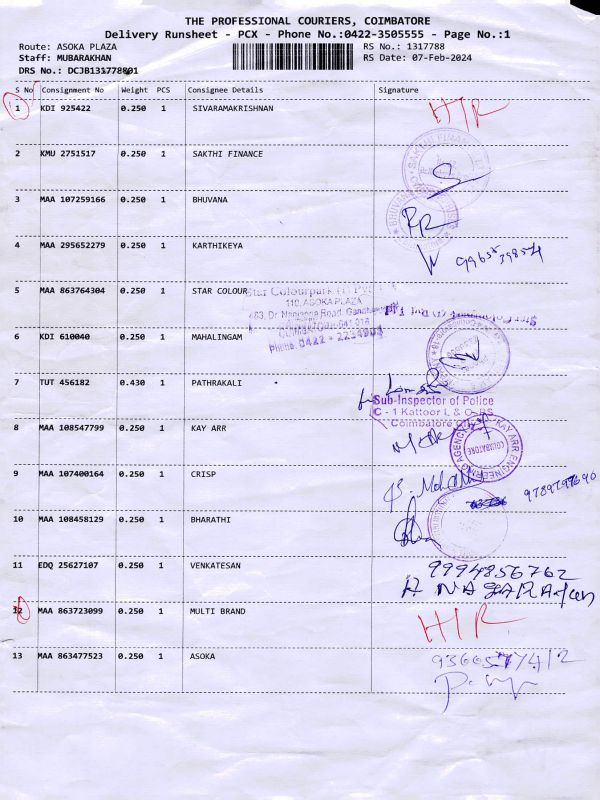 THE PROFESSIONAL COURIERS, COIMBATORE
Delivery Runsheet - PCX - Phone No.:0422-3505555 - Page No.:1
Route: ASOKA PLAZA
RS No.: 1317788
Staff: MUBARAKHAN
RS Date: 07-Feb-2024
DRS No.: DCJB131778801
S No Consignment No Weight PCS Consignee Details Signature
1 KDI 925422 0.250 1 SIVARAMAKRISHNAN H/R
2 KMU 2751517 0.250 1 SAKTHI FINANCE
3 MAA 107259166 0.250 1 BHUVANA
4 MAA 295652279 0.250 1 KARTHIKEYA
5 MAA 863764304 0.250 1 STAR COLOUR
Star Colourpark (I)
110, ASOKA PLAZA
483, Dr. Nanjappa Road,
COIMBATORE-641 018
Phone: 0422 - 2234903
6 KDI 610040 0.250 1 MAHALINGAM
7 TUT 456182 0.430 1 PATHRAKALI
Sub-Inspector of Police
C - 1 Kattoor L & O. PS
Coimbatore City
8 MAA 108547799 0.250 1 KAY ARR
KAY ARR ENGINEERING AGENCY
COIMBATORE
9 MAA 107400164 0.250 1 CRISP
9789799690
10 MAA 108458129 0.250 1 BHARATHI
11 EDQ 25627107 0.250 1 VENKATESAN 9994856762
12 MAA 863723099 0.250 1 MULTI BRAND H/R
13 MAA 863477523 0.250 1 ASOKA